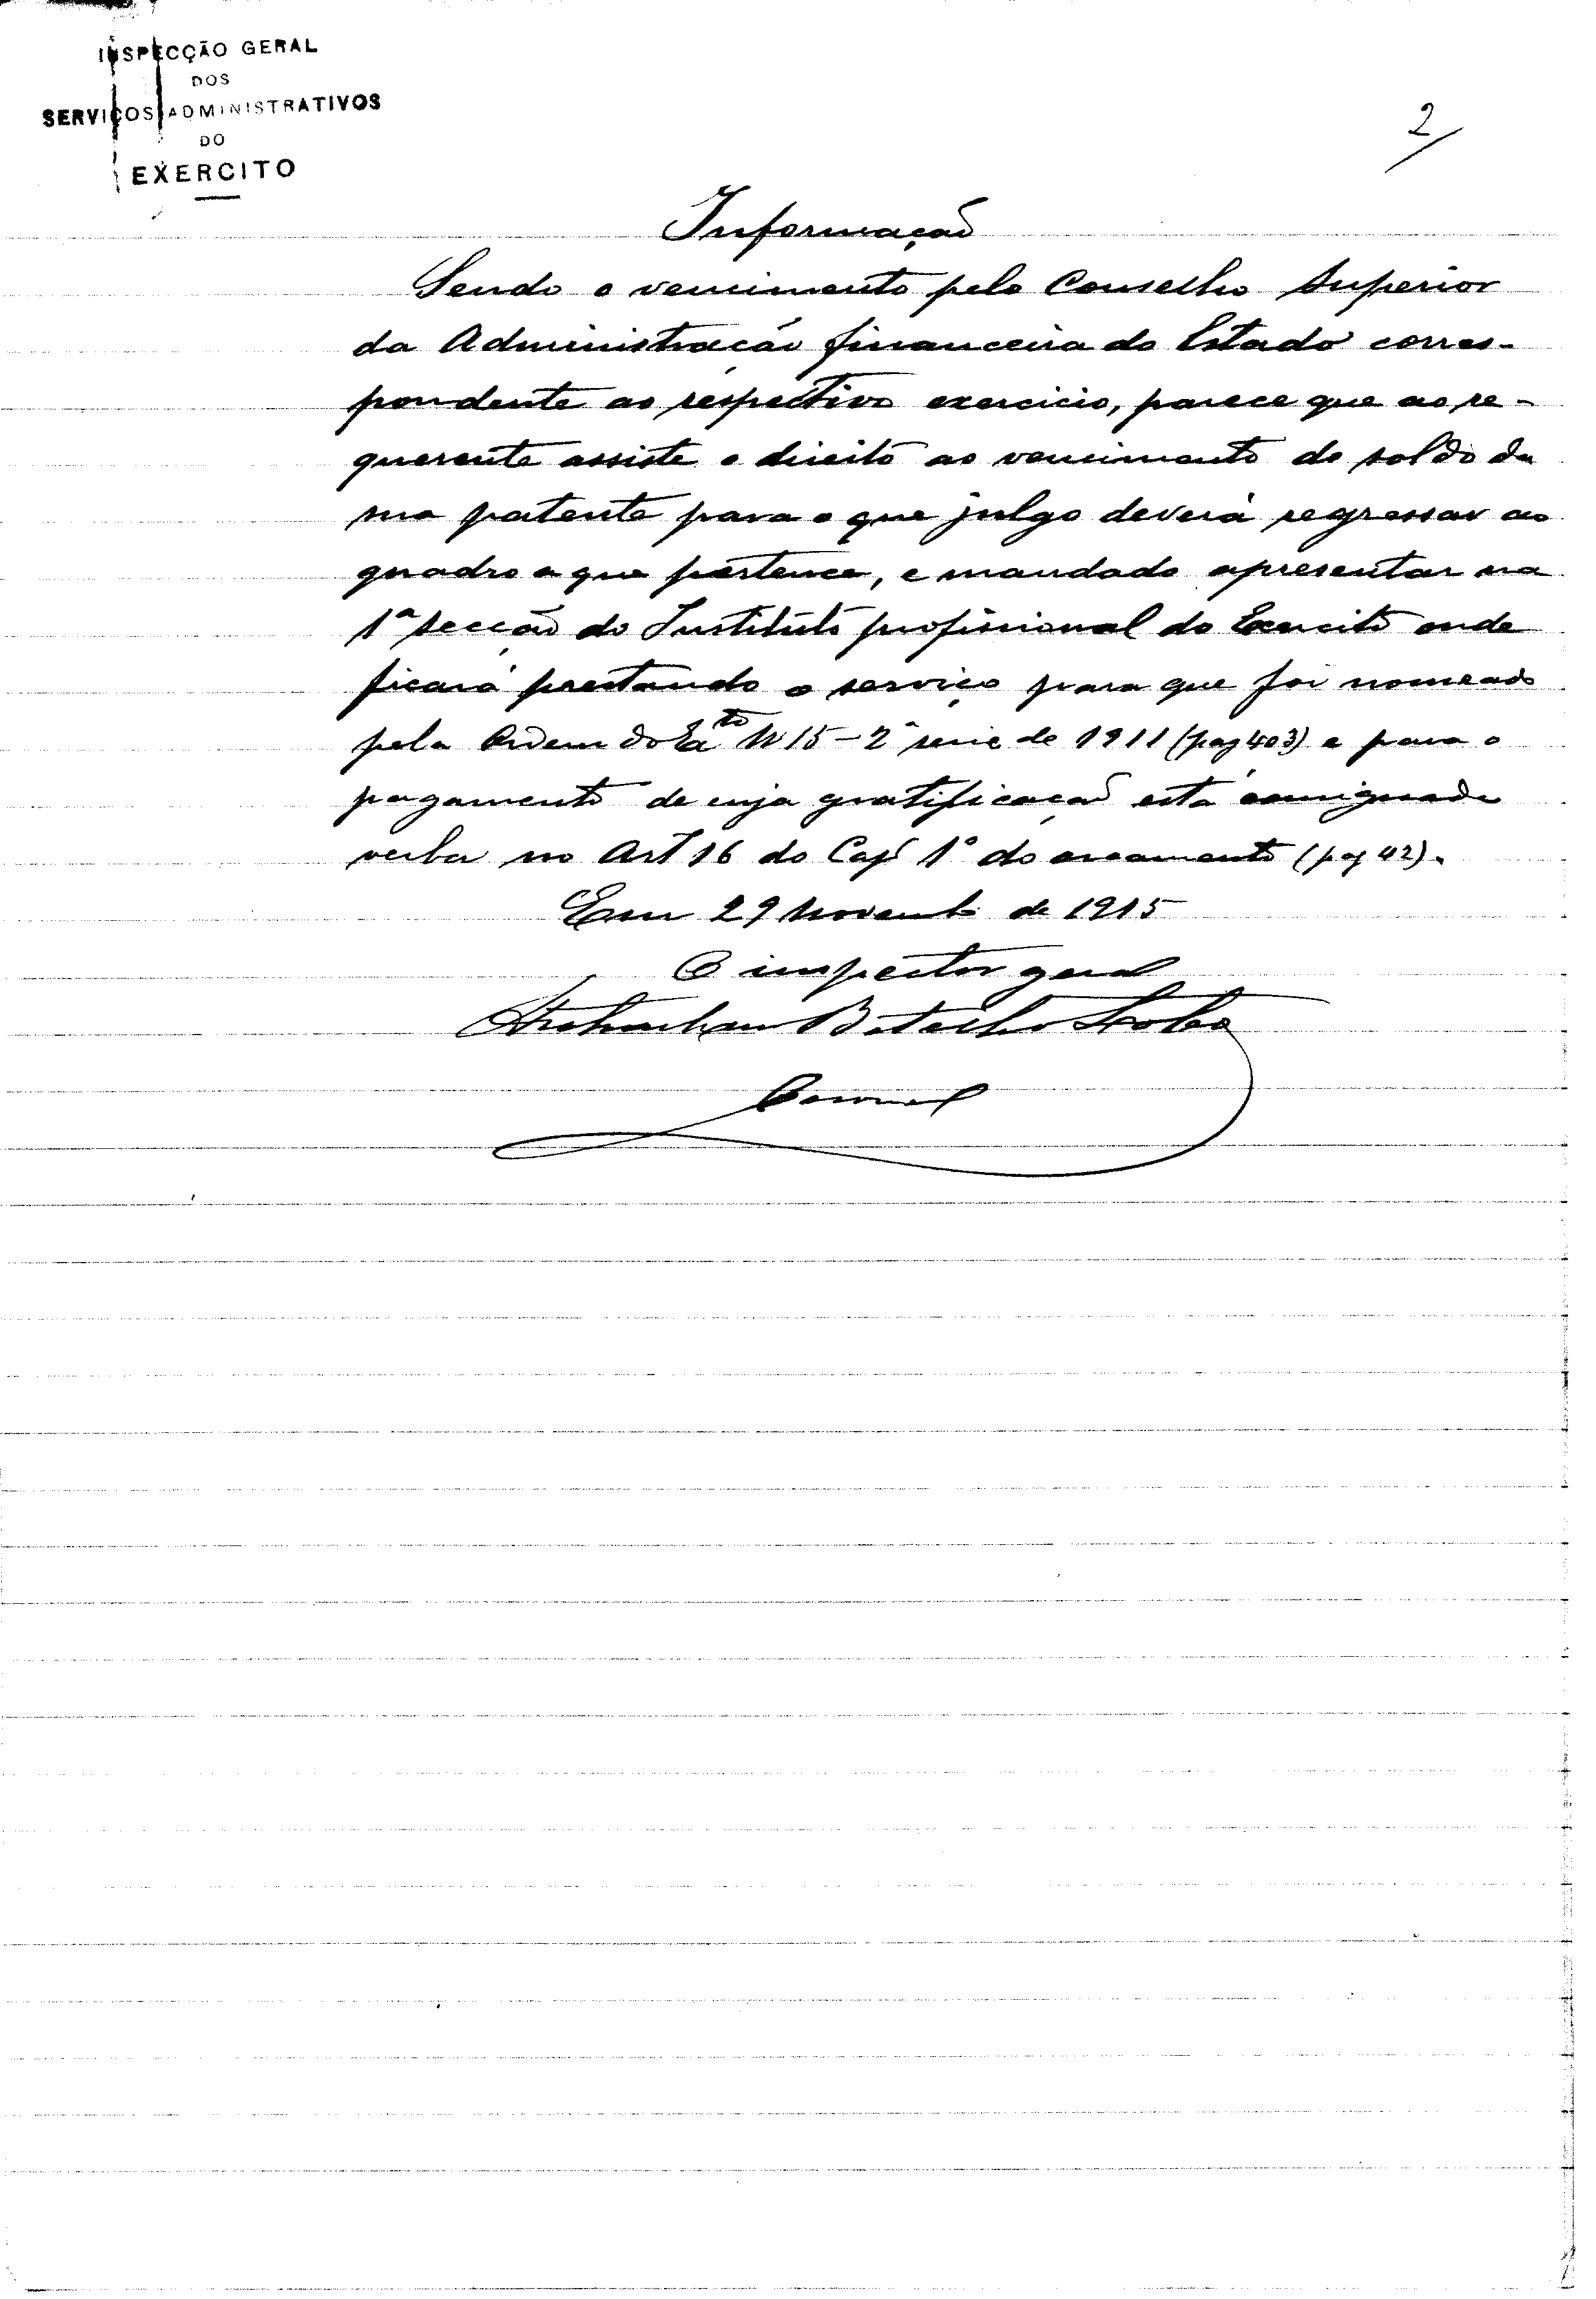 INSPECÇÃO GERAL
DOS
SERVIÇOS ADMINISTRATIVOS
DO
EXERCITO
2
Informação
Sendo o vencimento pelo Conselho Superior
da Administração financeira do Estado corres-
pondente ao respectivo exercicio, parece que ao re-
querente assiste o direito ao vencimento do soldo da
sua patente para o que julgo deverá regressar ao
quadro a que pertence, e mandado apresentar na
1ª secção do Instituto profissional do Exercito onde
ficará prestando o serviço para que foi nomeado
pela Ordem do Exto Nº 15 - 2ª serie de 1911 (pag 403) e para o
pagamento de cuja gratificação está consignada
verba no Art 16 do Cap 1º do orcamento (pag 42).
Em 29 Novembº de 1915
O inspector geral
Botelho Lobo
Coronel